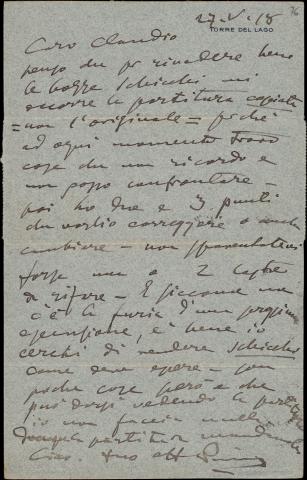 27-V-18
TORRE DEL LAGO
Caro Claudio
penso che per rivedere bene
le bozze Schicchi mi
occorre la partitura copiata
= non l'originale = perchè
ad ogni momento trovo
cose che non ricordo e
non posso confrontare -
poi ho due o 3 punti
che voglio correggere o anche
cambiare - non spaventatevi
forse una o 2 lastre
da rifare - E siccome non
c'è la furia d'una prossima
esecuzione, è bene io
cerchi di rendere Schicchi
come deve essere - son
poche cose però e che
può darsi vedendo la
io non faccia nulla
partitura
Ciao. tuo aff Puccini